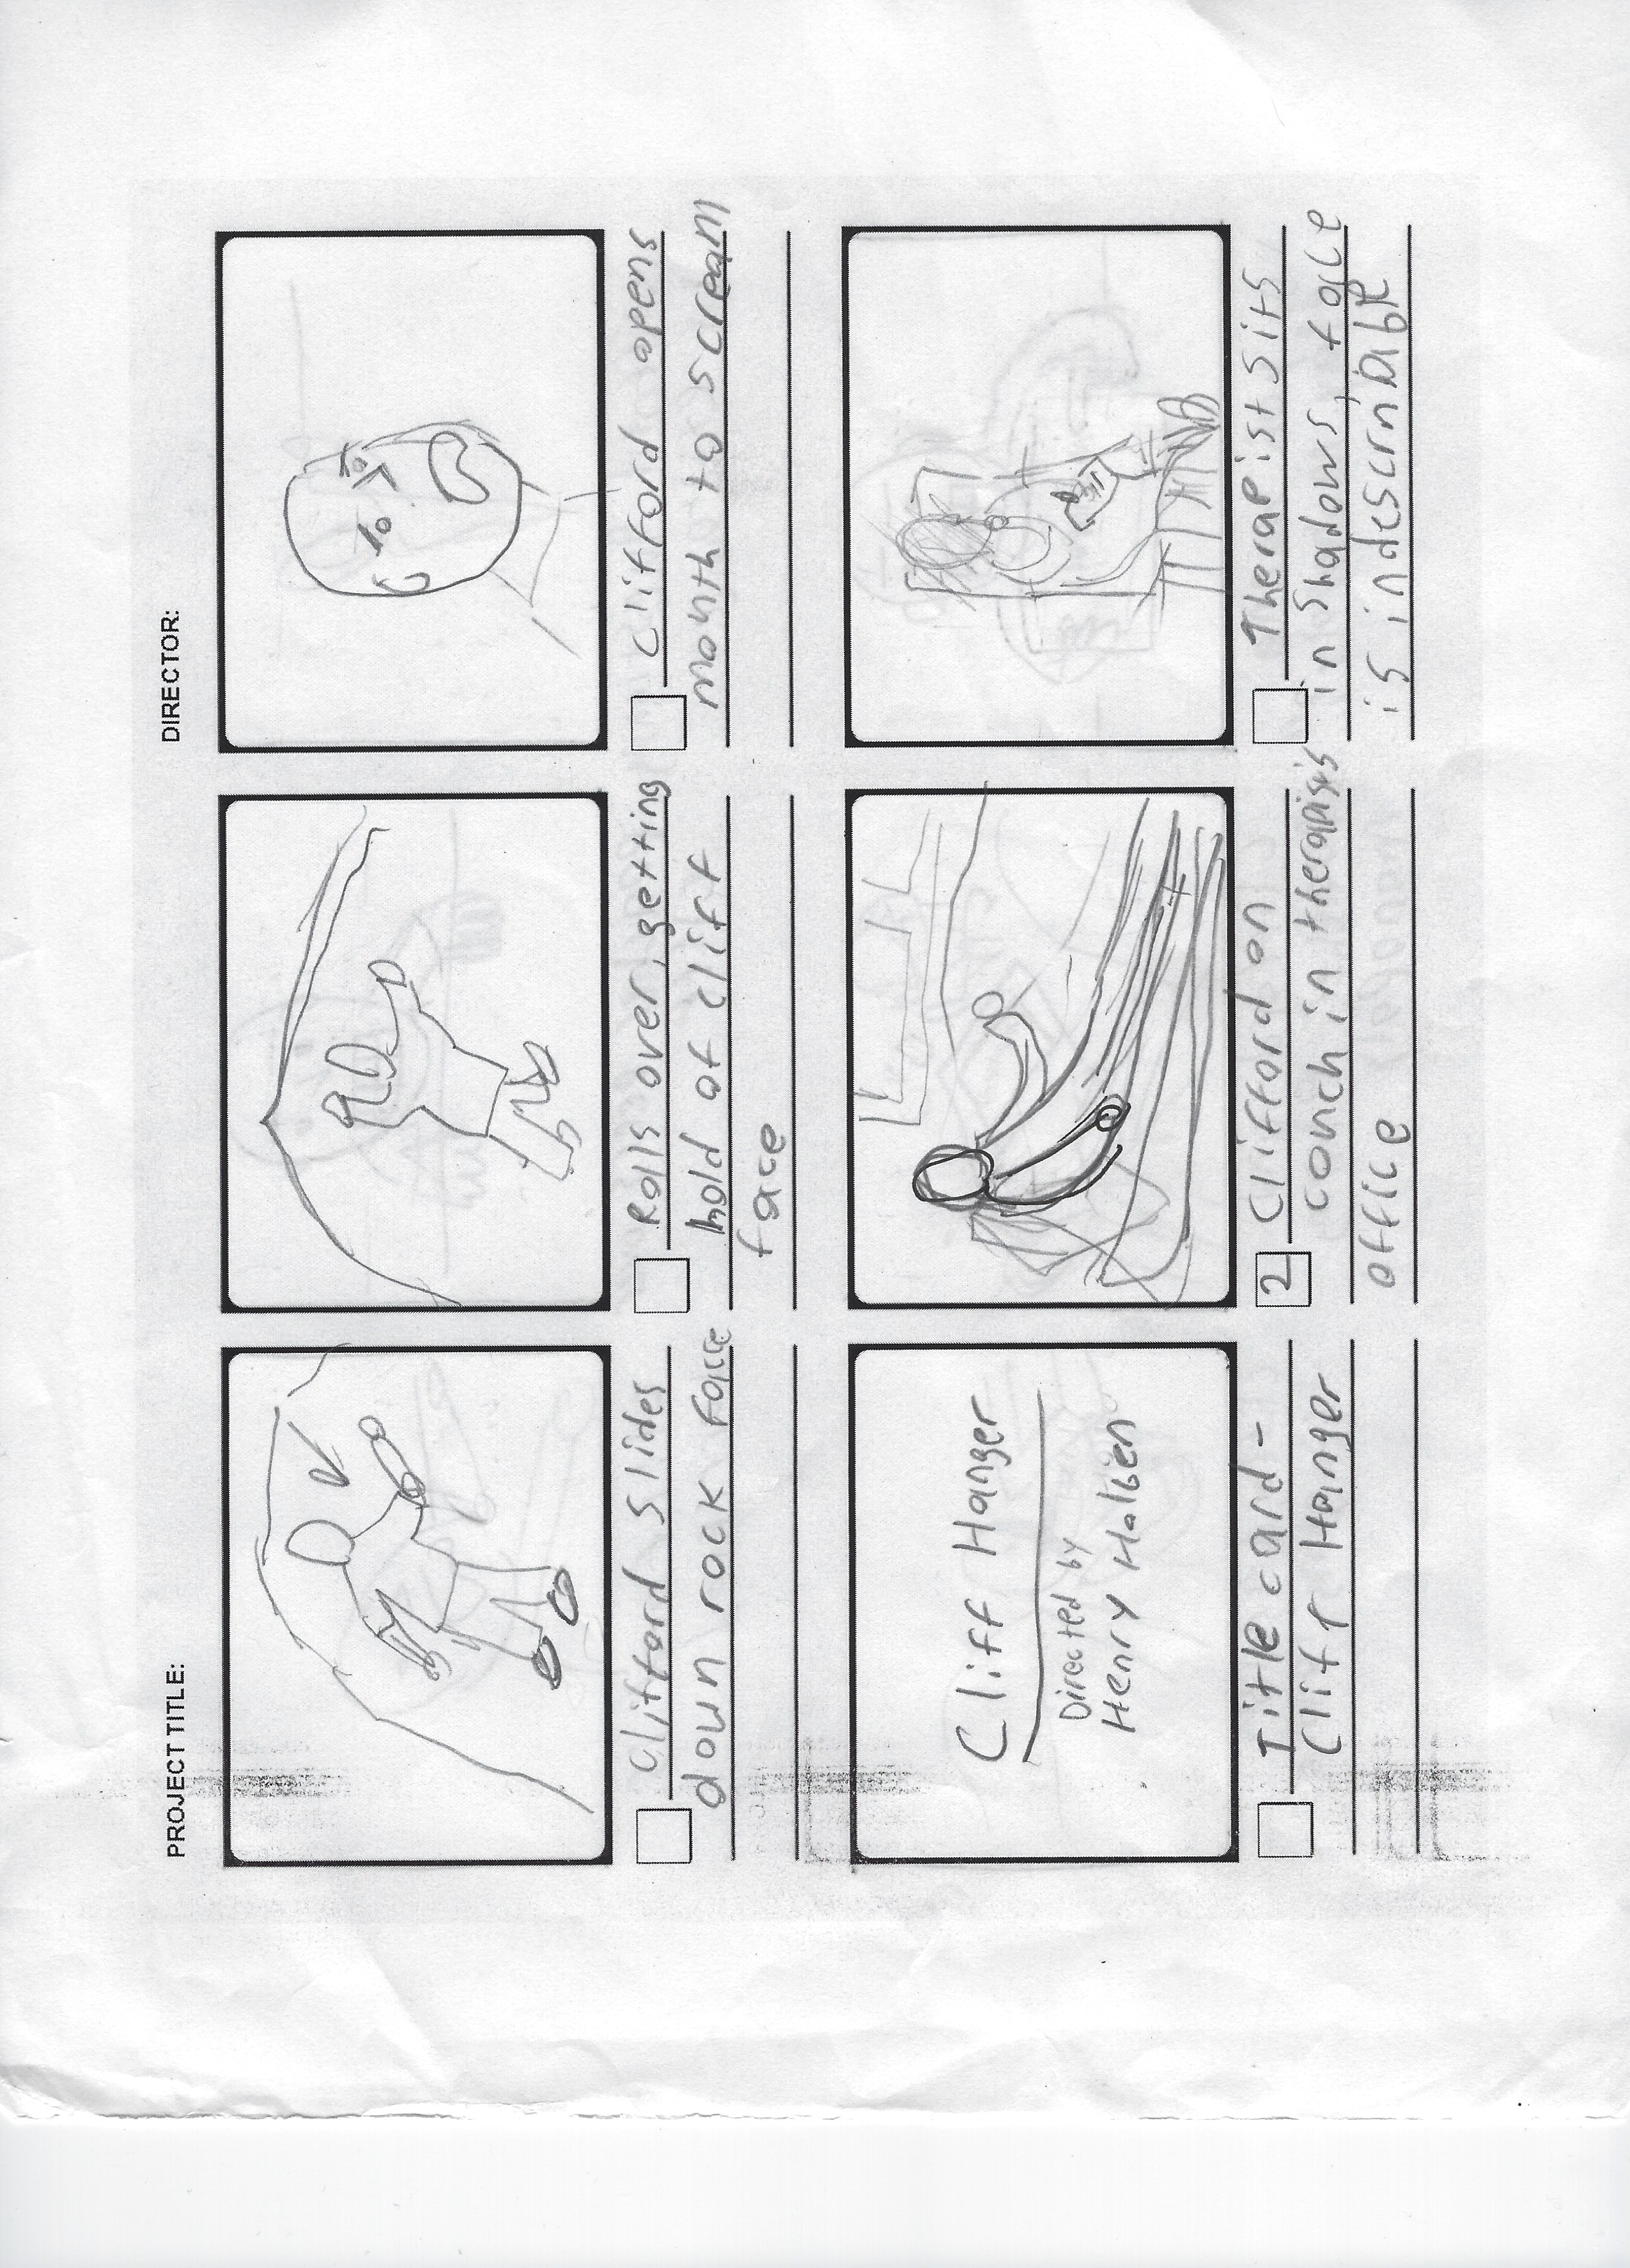 PROJECT TITLE:
DIRECTOR:
Clifford slides
down rock face
Rolls over, getting
hold of cliff
face
Clifford opens
mouth to scream
Cliff Hanger
Directed by
Henry Holbien
Title card -
Cliff Hanger
2
Clifford on
couch in therapist's
office
Therapist sits
in shadows, face
is indescribable